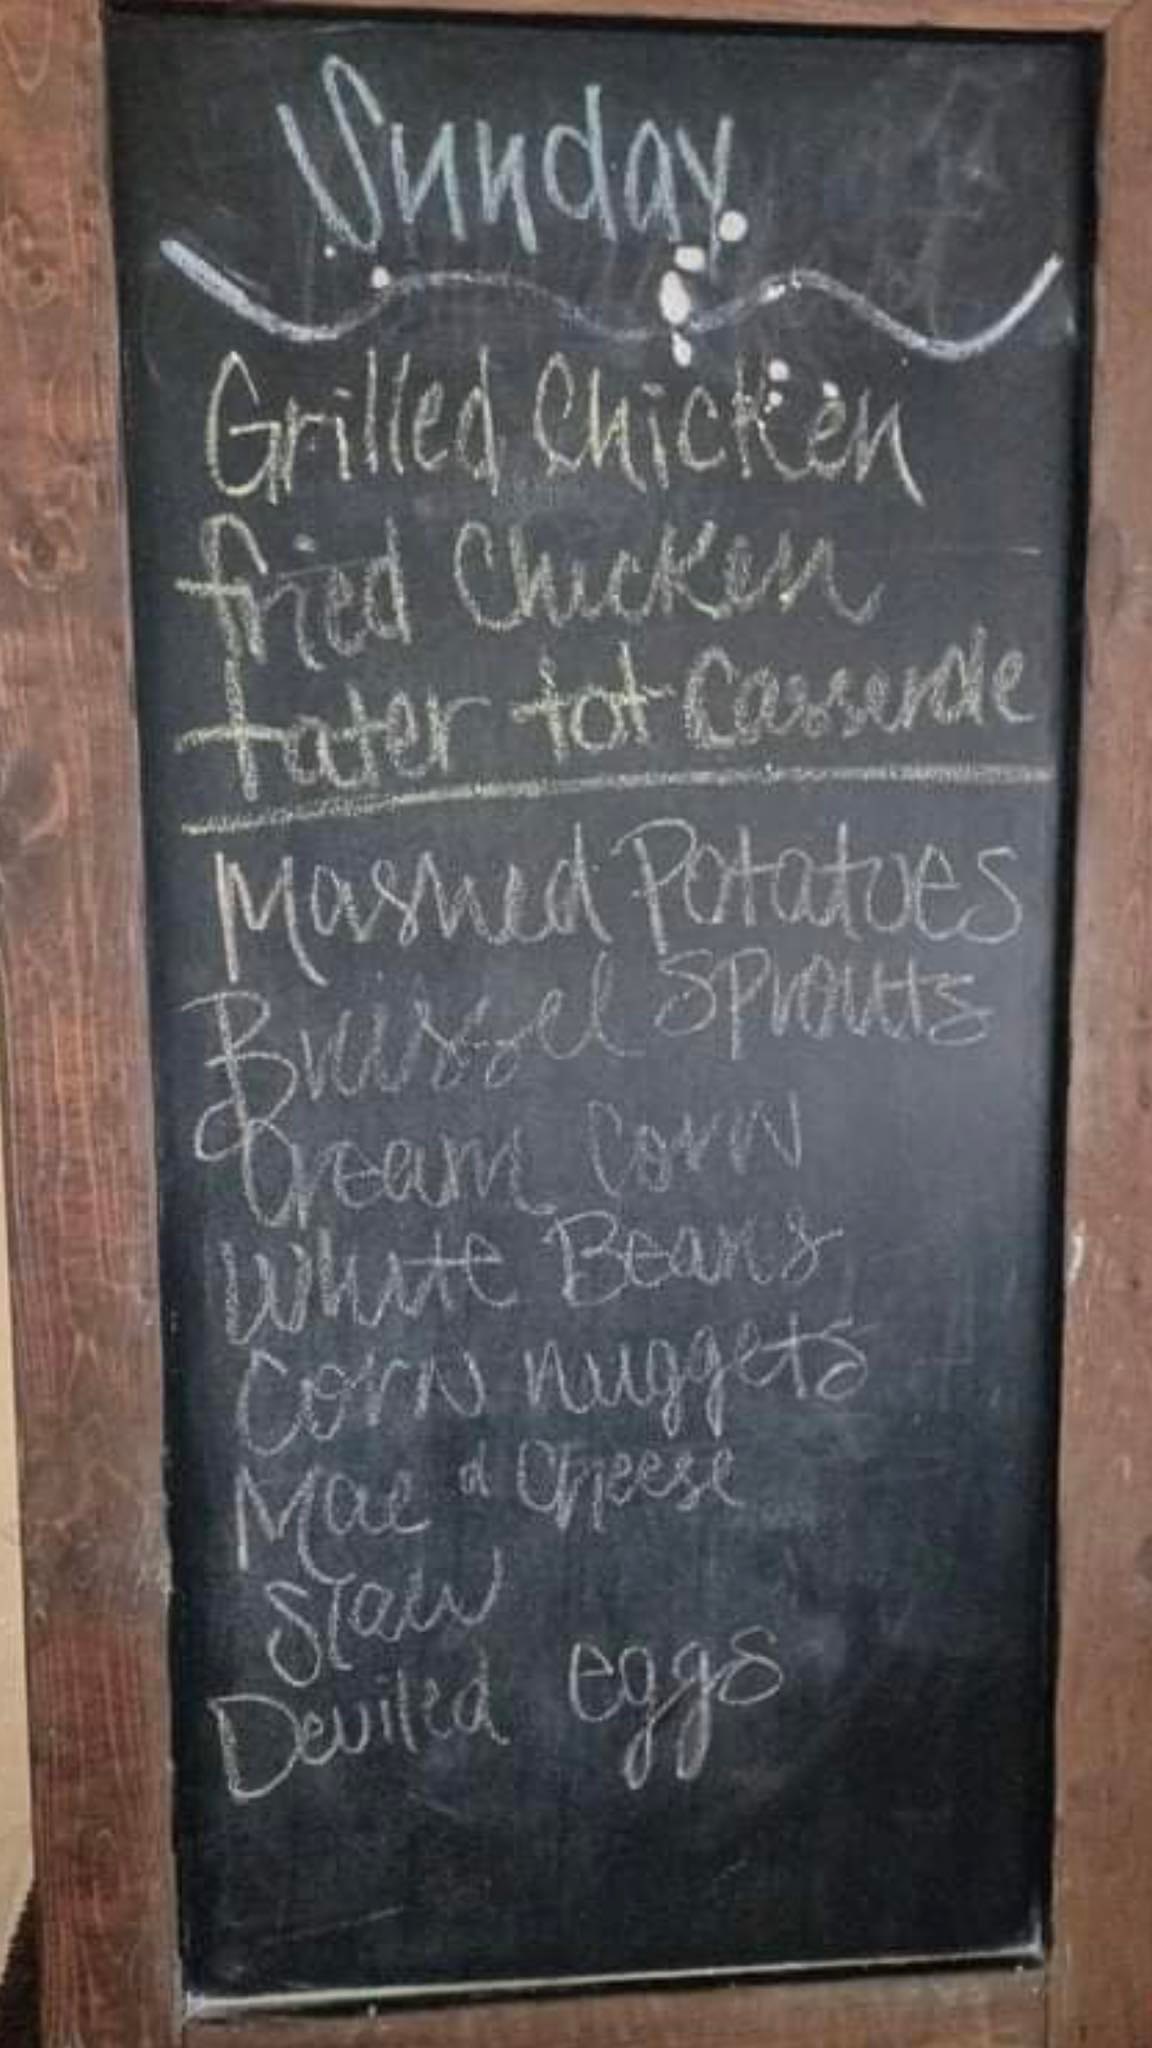 Sunday
Grilled Chicken
fried Chicken
tater tot Casserole
Mashed Potatoes
Brussel Sprouts
Cream Corn
White Beans
Corn nuggets
Mac & Cheese
Slaw
Deviled eggs